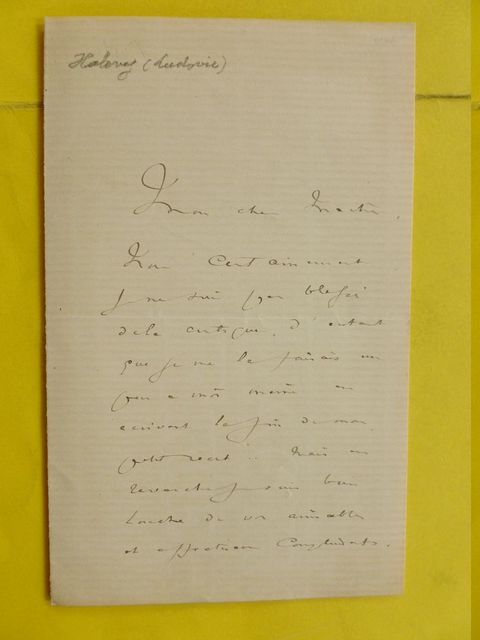 Halevy (Ludovic)
Mon cher Maître,
Non certainement
je ne suis pas blessé
de la critique, d'autant
que je me la faisais un
peu a moi même en
ecrivant la fin de mon
petit recit .. Mais en
revanche je suis bien
touché de vos aimables
et affectueux Compliments.